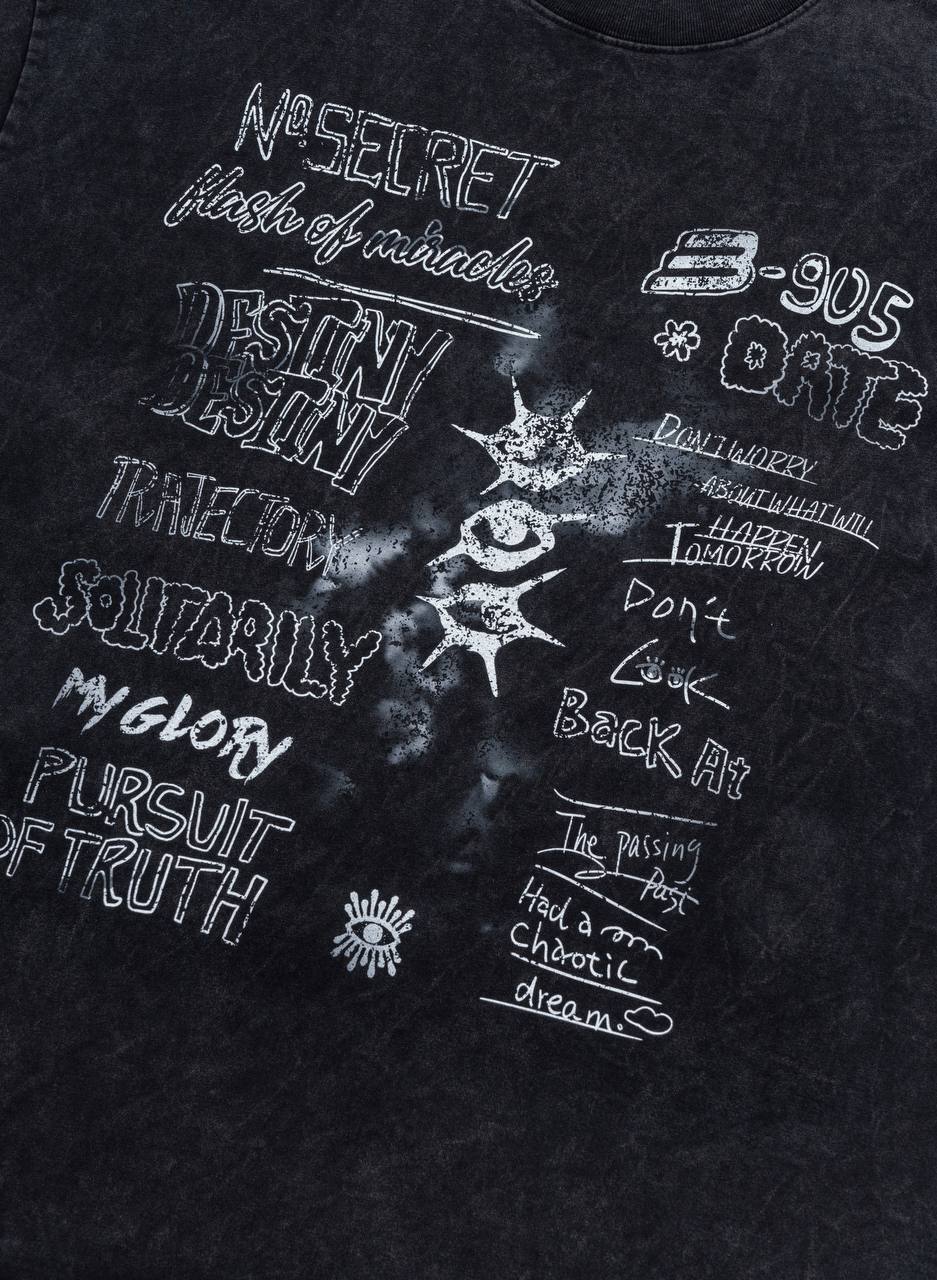 No SECRET
flash of miracles
DESTINY
DESTINY
TRAJECTORY
SOLITARILY
MY GLORY
PURSUIT
OF TRUTH
B-905
DATE
DON'T WORRY
ABOUT WHAT WILL
HAPPEN
TOMORROW
Don't
Look
Back At
The passing
Past
Had a
Chaotic
dream.